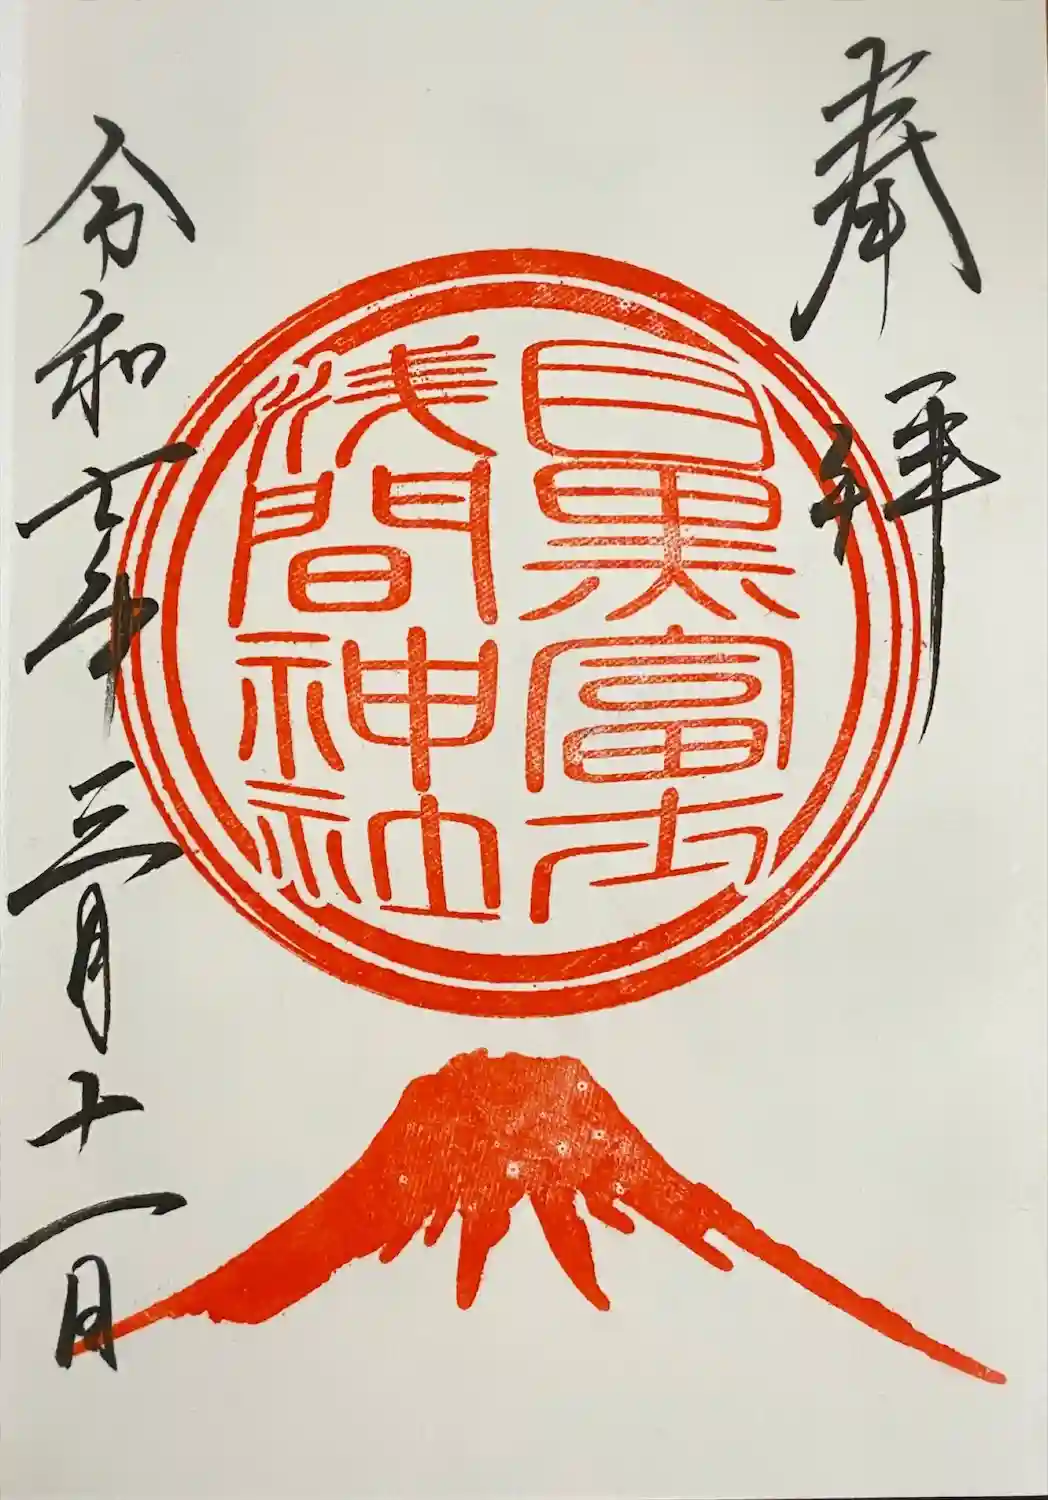 奉拝
目黒富士
浅間神社
令和 年三月十一日